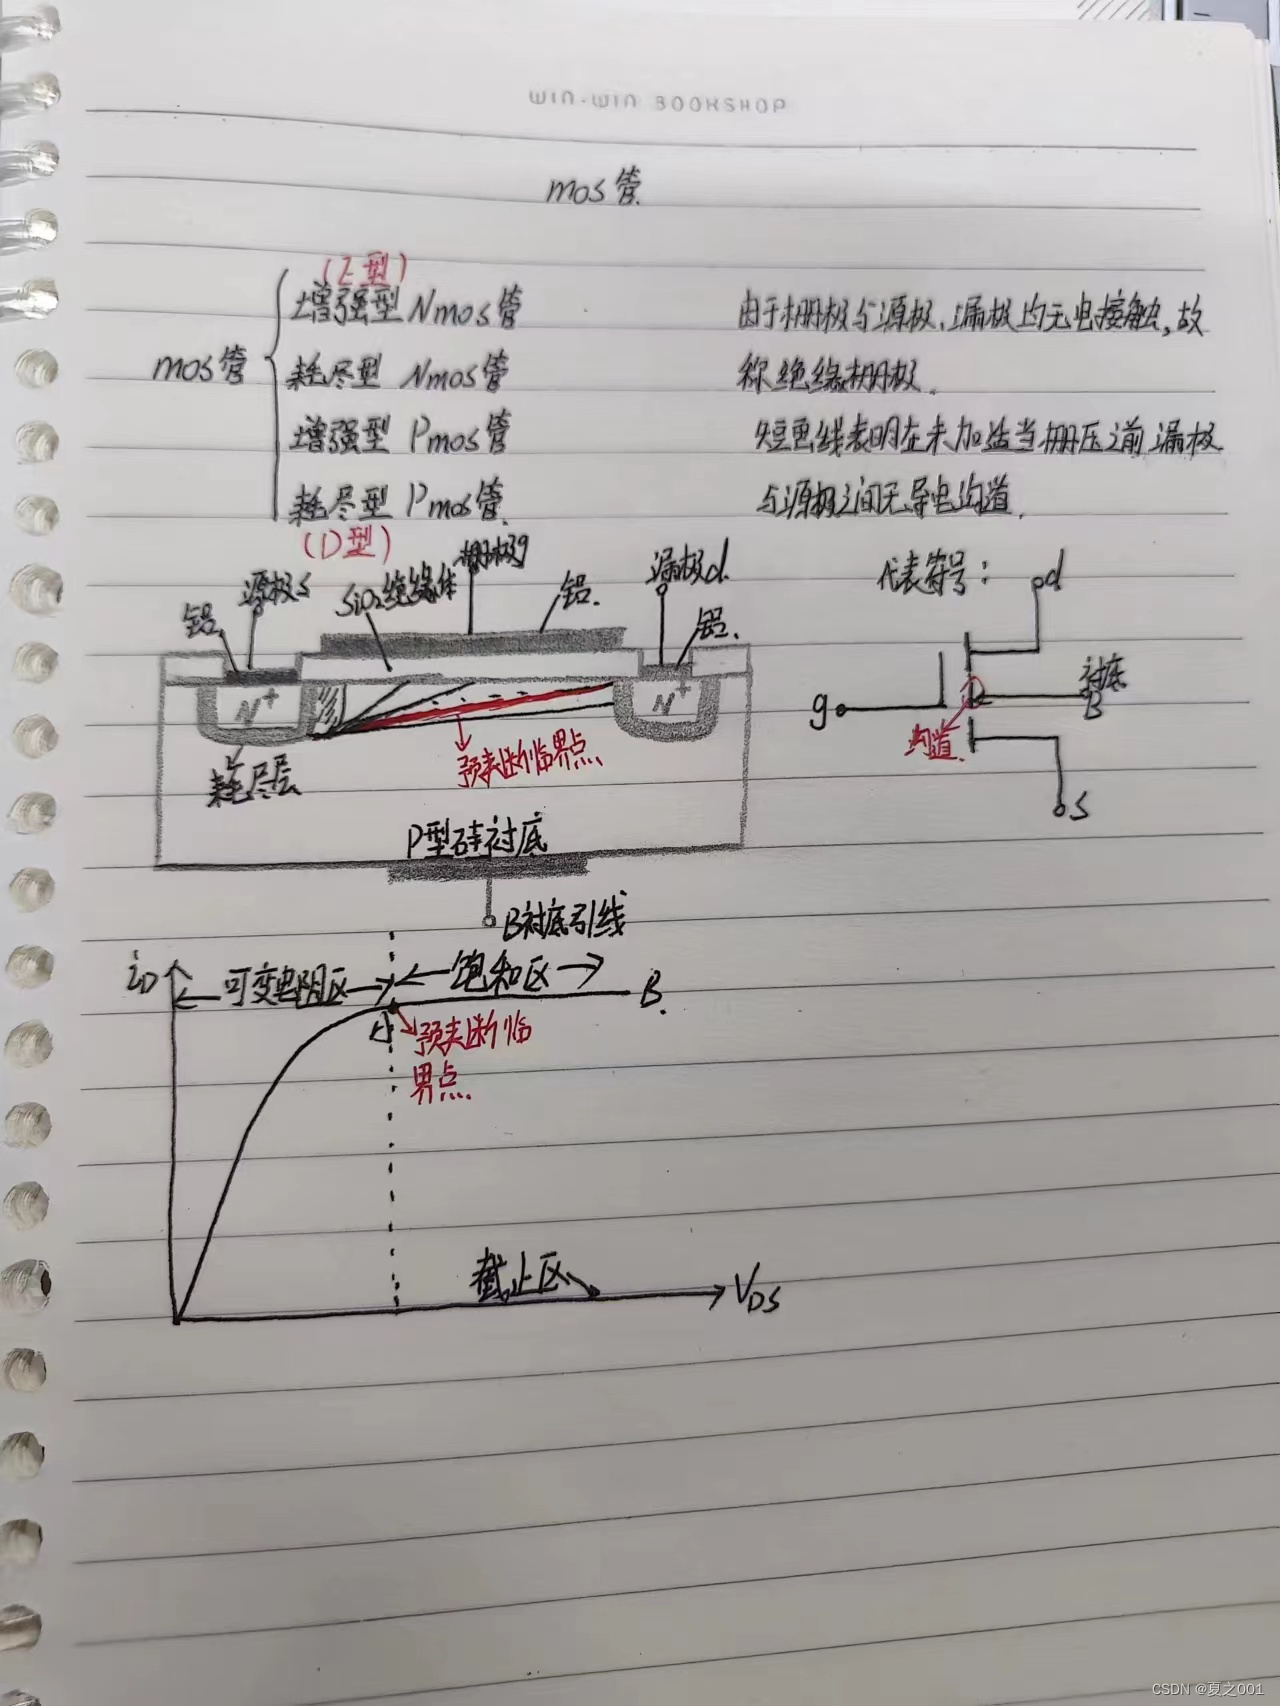 WIN-WIN BOOKSHOP
mos管
(E型)
mos管
增强型 Nmos管
耗尽型 Nmos管
增强型 Pmos管
耗尽型 Pmos管
(D型)
由于栅极与源极、漏极均无电接触,故
称绝缘栅极.
短画线表明在未加适当栅压之前漏极
与源极之间无导电沟道.
铝
源极s
SiO2绝缘体
栅极g
铝.
漏极d.
铝.
N+
N+
耗尽层
预夹断临界点
P型硅衬底
B衬底引线
代表符号:
d
衬底
B
g
沟道
s
iD
可变电阻区
饱和区
B
A
预夹断临
界点
截止区
VDS
CSDN @夏之001